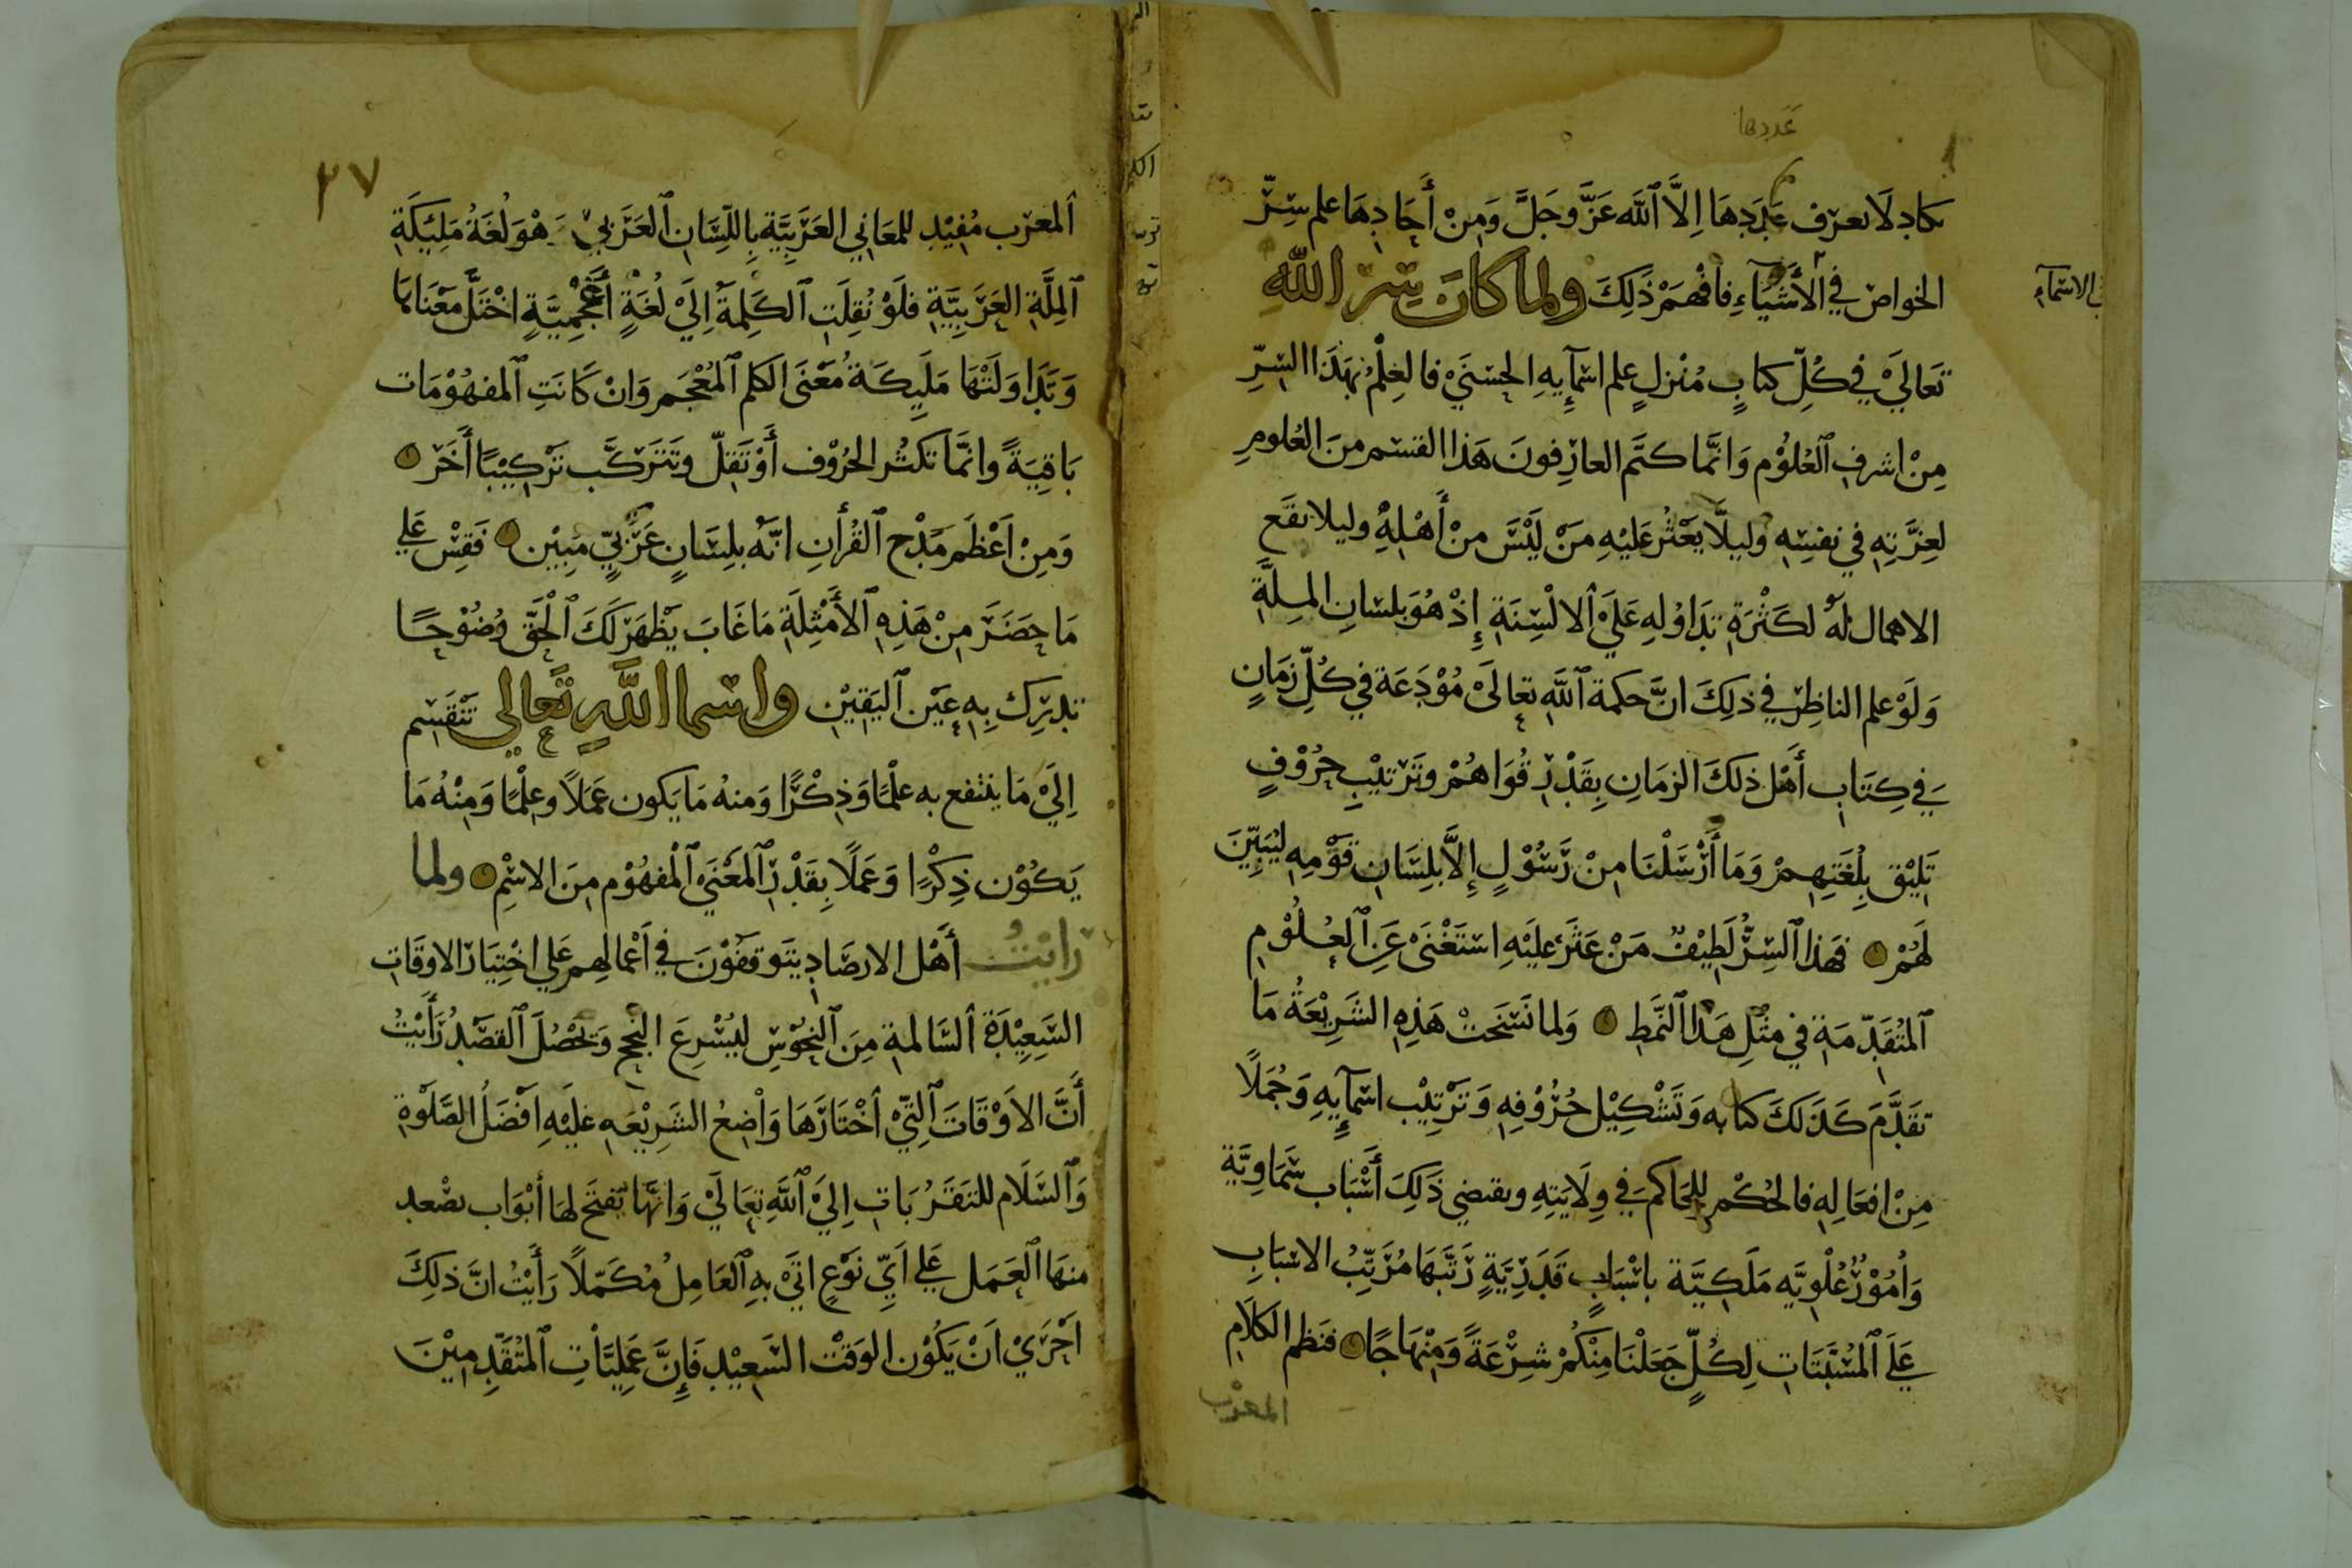 عددها
كاد لا يعرف عددها اِلَّا ٱللّه عَزَّ وجَلَّ وَمِنْ أَحَادِهَا علم سِرّ
الخواص في الأَشْيَآءِ فافْهَمْ ذَلِكَ ولما كانَ سِرّ اللّهِ
في الاسمآءِ
تَعالَيْ في كُلِّ كتابٍ مُنْزلٍ علم اسمآيِهِ الحسْنَيْ فالعِلْمُ بهَذَا السّرِّ
مِنْ اشرفِ ٱلعُلُوْم وَانَّما كتَم العارفونَ هَذا القسم منَ العُلومِ
لعِزَّتِهِ في نفسِهِ وليلَّا يَعْثُر عَلَيْهِ مَنْ لَيْسَ منْ أَهْلِهِ وليلا يقَع
الاهمال لَهُ لكَثْرَةِ تدَاوُلهِ عَلَيْ ٱلالْسِنَةِ إِذْ هُوَ بلسَانِ المِلَّةِ
وَلَوْ علم الناظِر في ذلِكَ انَّ حكمة ٱللَّهِ تعالَيْ مُوْدَعَة في كُلِّ زمَانٍ
في كِتَابِ أَهْل ذلكَ الزمَانِ بِقَدْرِ قُوَاهُمْ وتَرْتيْبِ حرُوْفٍ
تَلِيْق بِلُغَتِهِمْ وَمَا أَرْسَلْنَا مِنْ رَّسُوْلٍ إِلَّا بلِسَانِ قَوْمِهِ ليُبَيِّنَ
لَهُمْ فهَذا ٱلسِّرُّ لَطِيْفٌ مَنْ عَثَرَ عليْهِ استَغْنَيْ عَنِ ٱلعُلُوْمِ
ٱلمُتَقَدِّمَةِ في مثْلِ هَذا ٱلنَّمَطِ وَلما نَسَخَتْ هَذِهِ الشَرِيْعَةُ مَا
تقَدَّمَ كَذَلكَ كتابه وَتَشْكِيْل حُرُوْفِهِ وَتَرْتِيْب اسمآيِهِ وَجُمَلًا
مِنْ افعَالِهِ فالحُكْم للحَاكم في وِلَايَتِهِ ويقتضي ذَلِكَ أَسْبَاب سَمَاوِيَّة
وَاُمُوْرٌ عُلْوِيَّه مَلَكِيَّة باسْبَابٍ قَدَرِيَّةٍ رَتَّبَهَا مُرَتِّبُ الاسْبَابِ
عَلَيَ ٱلمُسَبَّبَاتِ لِكُلٍّ جَعَلْنَا مِنْكُمْ شِرْعَةً وَمِنْهَاجًا فنظم الكَلَامِ
المعرب
٣٧
ٱلمعرَب مُفِيْدِ للمَعَانِي العَرَبِيَّة بِاللِّسَانِ ٱلعَرَبيْ وَهْوَ لُغَةُ مَلِيْكَةِ
ٱلمِلَّةِ العَرَبِيَّةِ فلَوْ نُقِلَتِ ٱلكَلِمَة اِلَيْ لُغَةٍ أَعْجَمِيَّةٍ اخْتَلَّ معْنَاهَا
وَتَدَاوَلَتْهَا مَلَيِكَةُ مَعْنَى الكلم ٱلمُعْجَم وَانْ كَانَتِ ٱلمفهُوْمَات
بَاقِيَةً وانَّمَا تكثُر الحُرُوْف أَوْ تَقِلّ وتَتَرَكَّب تَرْكِيْبًا أَخَر
وَمِنْ اَعْظَم مَدْحِ ٱلقُرأنِ انَّه بلِسَانٍ عَرَبِيٍّ مبِيْن فَقِسْ عَلي
مَا حضَرَ مِنْ هَذِهِ ٱلاَمْثِلَةِ مَا غَابَ يَظْهَر لَكَ ٱلْحَقّ وُضُوْحًا
تدرِك بِهِ عَيْن ٱليَقِيْنِ واسما اللَّهِ تَعالي تنْقَسِم
اِلَيْ مَا ينتفع به علْمًا وَذِكْرًا وَمنهُ مَا يَكون عَمَلًا وعِلْمًا وَمِنْهُ مَا
يَكُوْن ذِكْرًا وَعَمَلًا بِقَدْرِ ٱلمَعْنَيْ ٱلْمفهُوْم مِنَ الاسْمِ ولما
رايْتُ أَهْل الارصَادِ يتَوقفُوْنَ في اَعْمالِهم عَلي اخْتِيَار الاوقَاتِ
السَعِيْدَةِ ٱلسَّالمةِ مِنَ ٱلنحُوْسِ ليُسْرِعَ النجح وَيَحْصُلَ ٱلقصْدُ رَأَيْتُ
أَنَّ الاَوْقَاتَ ٱلتِيْ اُخْتَارَهَا وَاْضِعُ الشَرِيْعَهِ عَلَيْهِ افْضَلُ الصَّلَوةِ
وَٱلسَّلَام للتقَرُبَاتِ اِلَيْ ٱللَّهِ تعَالَيْ وَانَّها تُفتَح لهَا أَبْوَاب يصْعد
منهَا ٱلعَمَل عَلي اَيِّ نَوْعٍ اتَيْ بهِ ٱلعَامِلُ مُكَمّلًا رَأَيْتُ انَّ ذلِكَ
اَحْرَيْ اَنْ يَكُوْن الوَقْتَ السَعِيْد فَإِنَّ عَمَلِيَّاْتِ ٱلمُتَقَدِّمِيْنَ